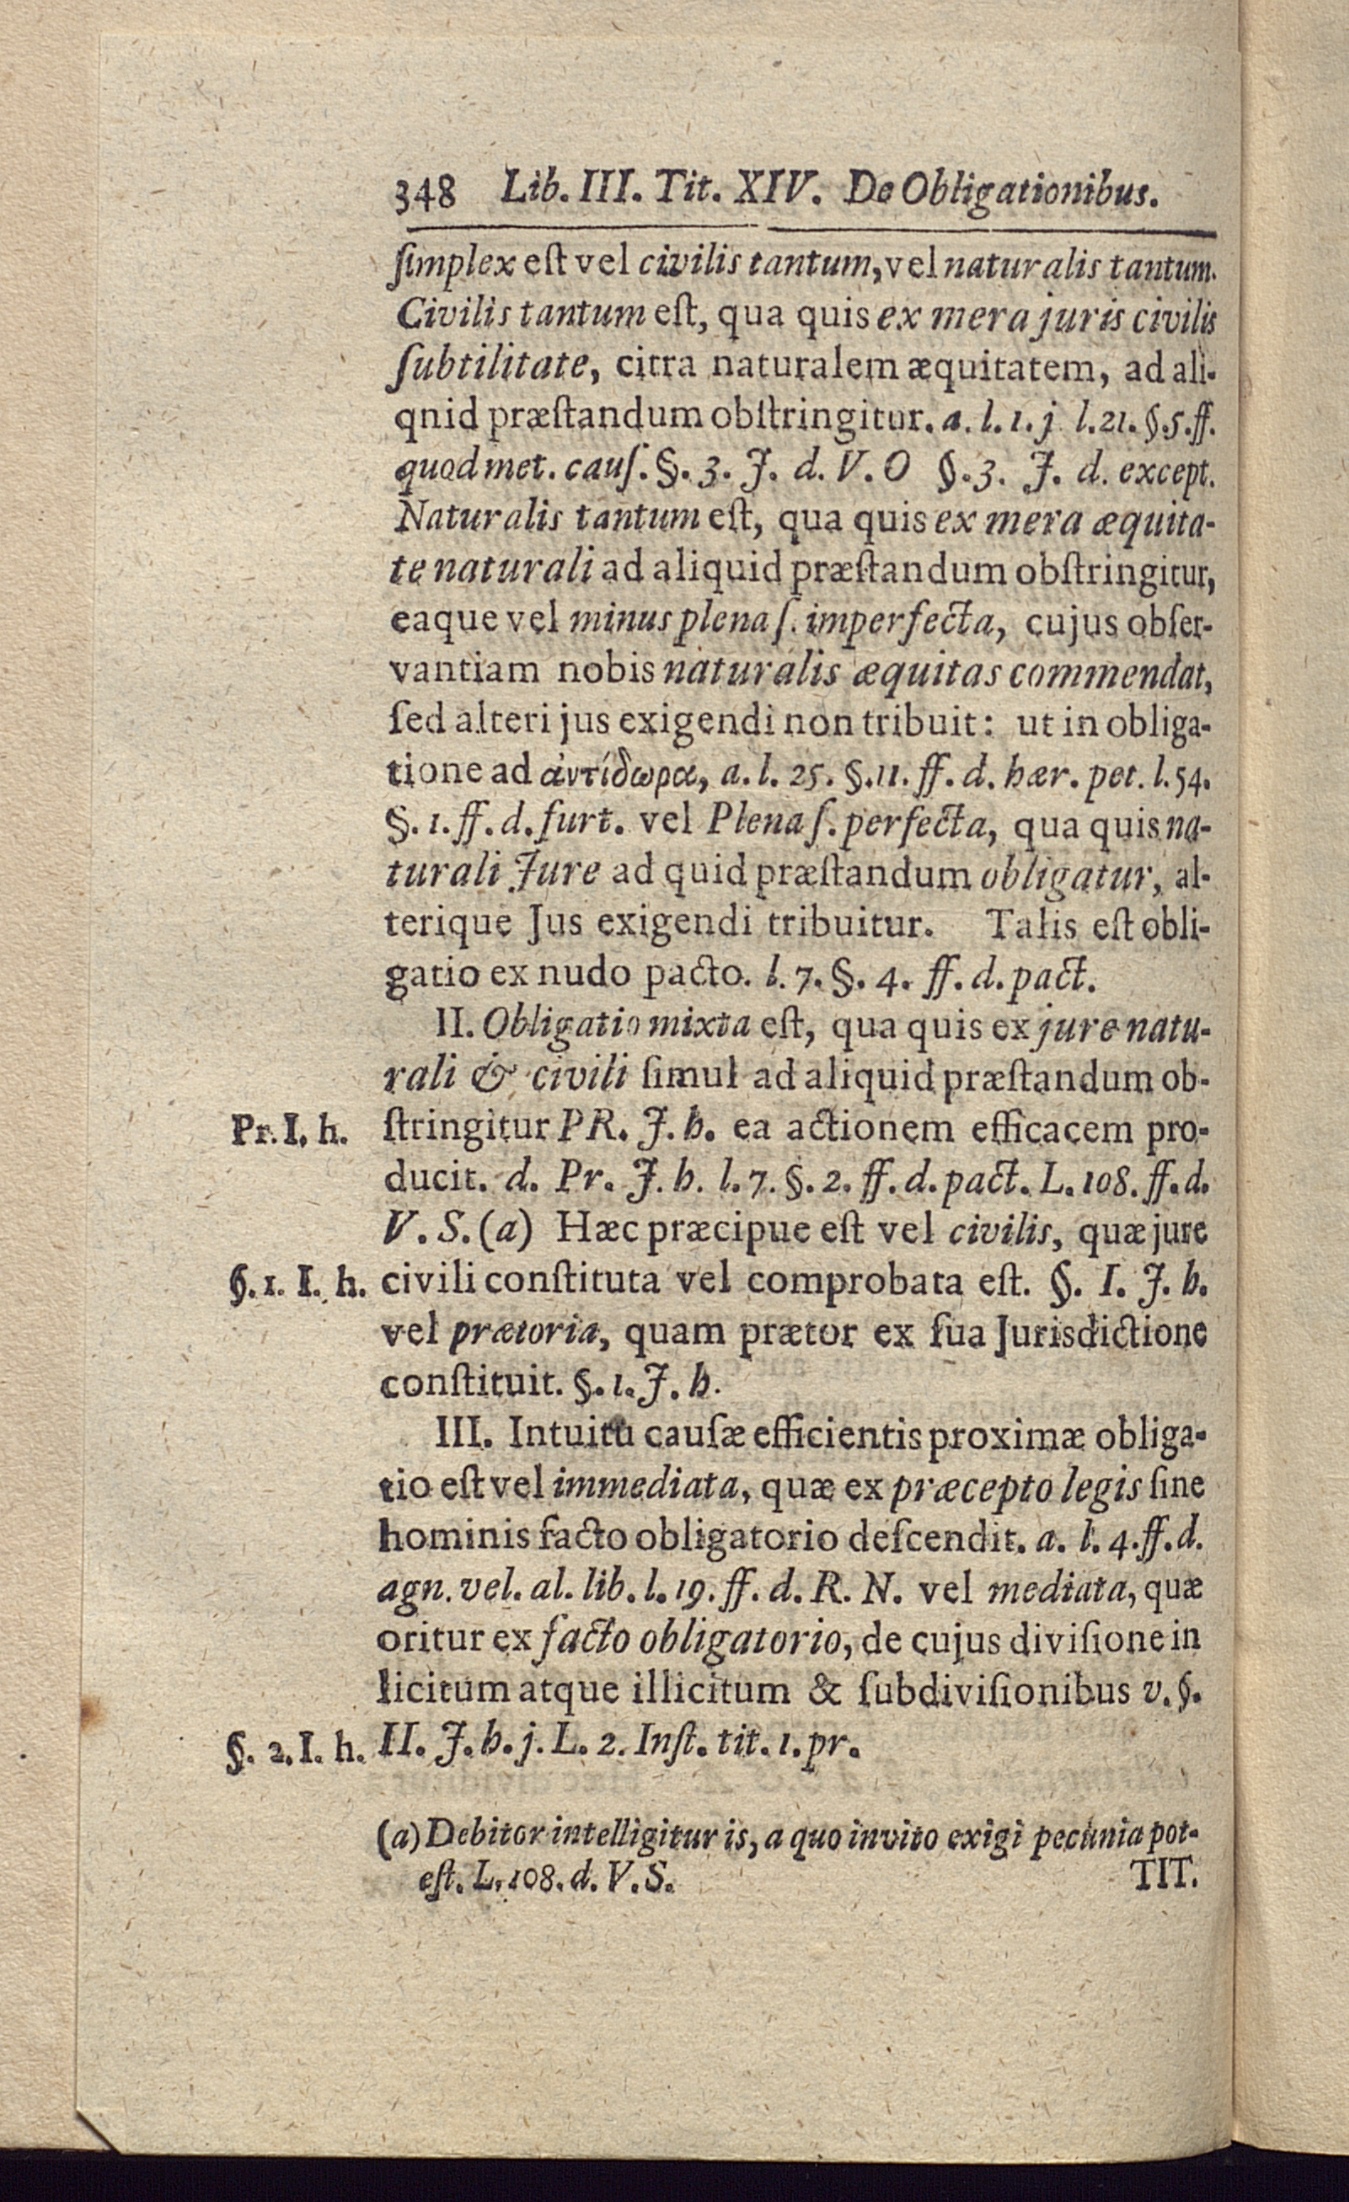 348 Lib. III. Tit. XIV. De Obligationibus.
ſimplex eſt vel civilis tantum, vel naturalis tantum.
Civilis tantum eſt, qua quis ex mera juris civilis
ſubtilitate, citra naturalem æquitatem, ad ali-
qnid præſtandum obſtringitur. a. l. 1. j l. 21. §. 5. ff.
quod met. cauſ. §. 3. J. d. V. O §. 3. J. d. except.
Naturalis tantum eſt, qua quis ex mera æquita-
te naturali ad aliquid præſtandum obſtringitur,
eaque vel minus plena ſ. imperfecta, cujus obſer-
vantiam nobis naturalis æquitas commendat,
ſed alteri jus exigendi non tribuit: ut in obliga-
tione ad ἀντίδωρα, a. l. 25. §. 11. ff. d. hær. pet. l. 54.
§. 1. ff. d. furt. vel Plena ſ. perfecta, qua quis na-
turali Jure ad quid præſtandum obligatur, al-
terique Jus exigendi tribuitur. Talis eſt obli-
gatio ex nudo pacto. l. 7. §. 4. ff. d. pact.
II. Obligatio mixta eſt, qua quis ex jure natu-
rali & civili ſimul ad aliquid præſtandum ob-
Pr. I. h. ſtringitur PR. J. h. ea actionem efficacem pro-
ducit. d. Pr. J. h. l. 7. §. 2. ff. d. pact. L. 108. ff. d.
V. S. (a) Hæc præcipue eſt vel civilis, quæ jure
§. 1. I. h. civili conſtituta vel comprobata eſt. §. I. J. h.
vel prætoria, quam prætor ex ſua Jurisdictione
conſtituit. §. 1. J. h.
III. Intuitu cauſæ efficientis proximæ obliga-
tio eſt vel immediata, quæ ex præcepto legis ſine
hominis facto obligatorio deſcendit. a. l. 4. ff. d.
agn. vel. al. lib. l. 19. ff. d. R. N. vel mediata, quæ
oritur ex facto obligatorio, de cujus diviſione in
licitum atque illicitum & ſubdiviſionibus v. §.
§. 2. I. h. II. J. h. j. L. 2. Inſt. tit. 1. pr.
(a) Debitor intelligitur is, a quo invito exigi pecunia pot-
eſt. L. 108. d. V. S. TIT.